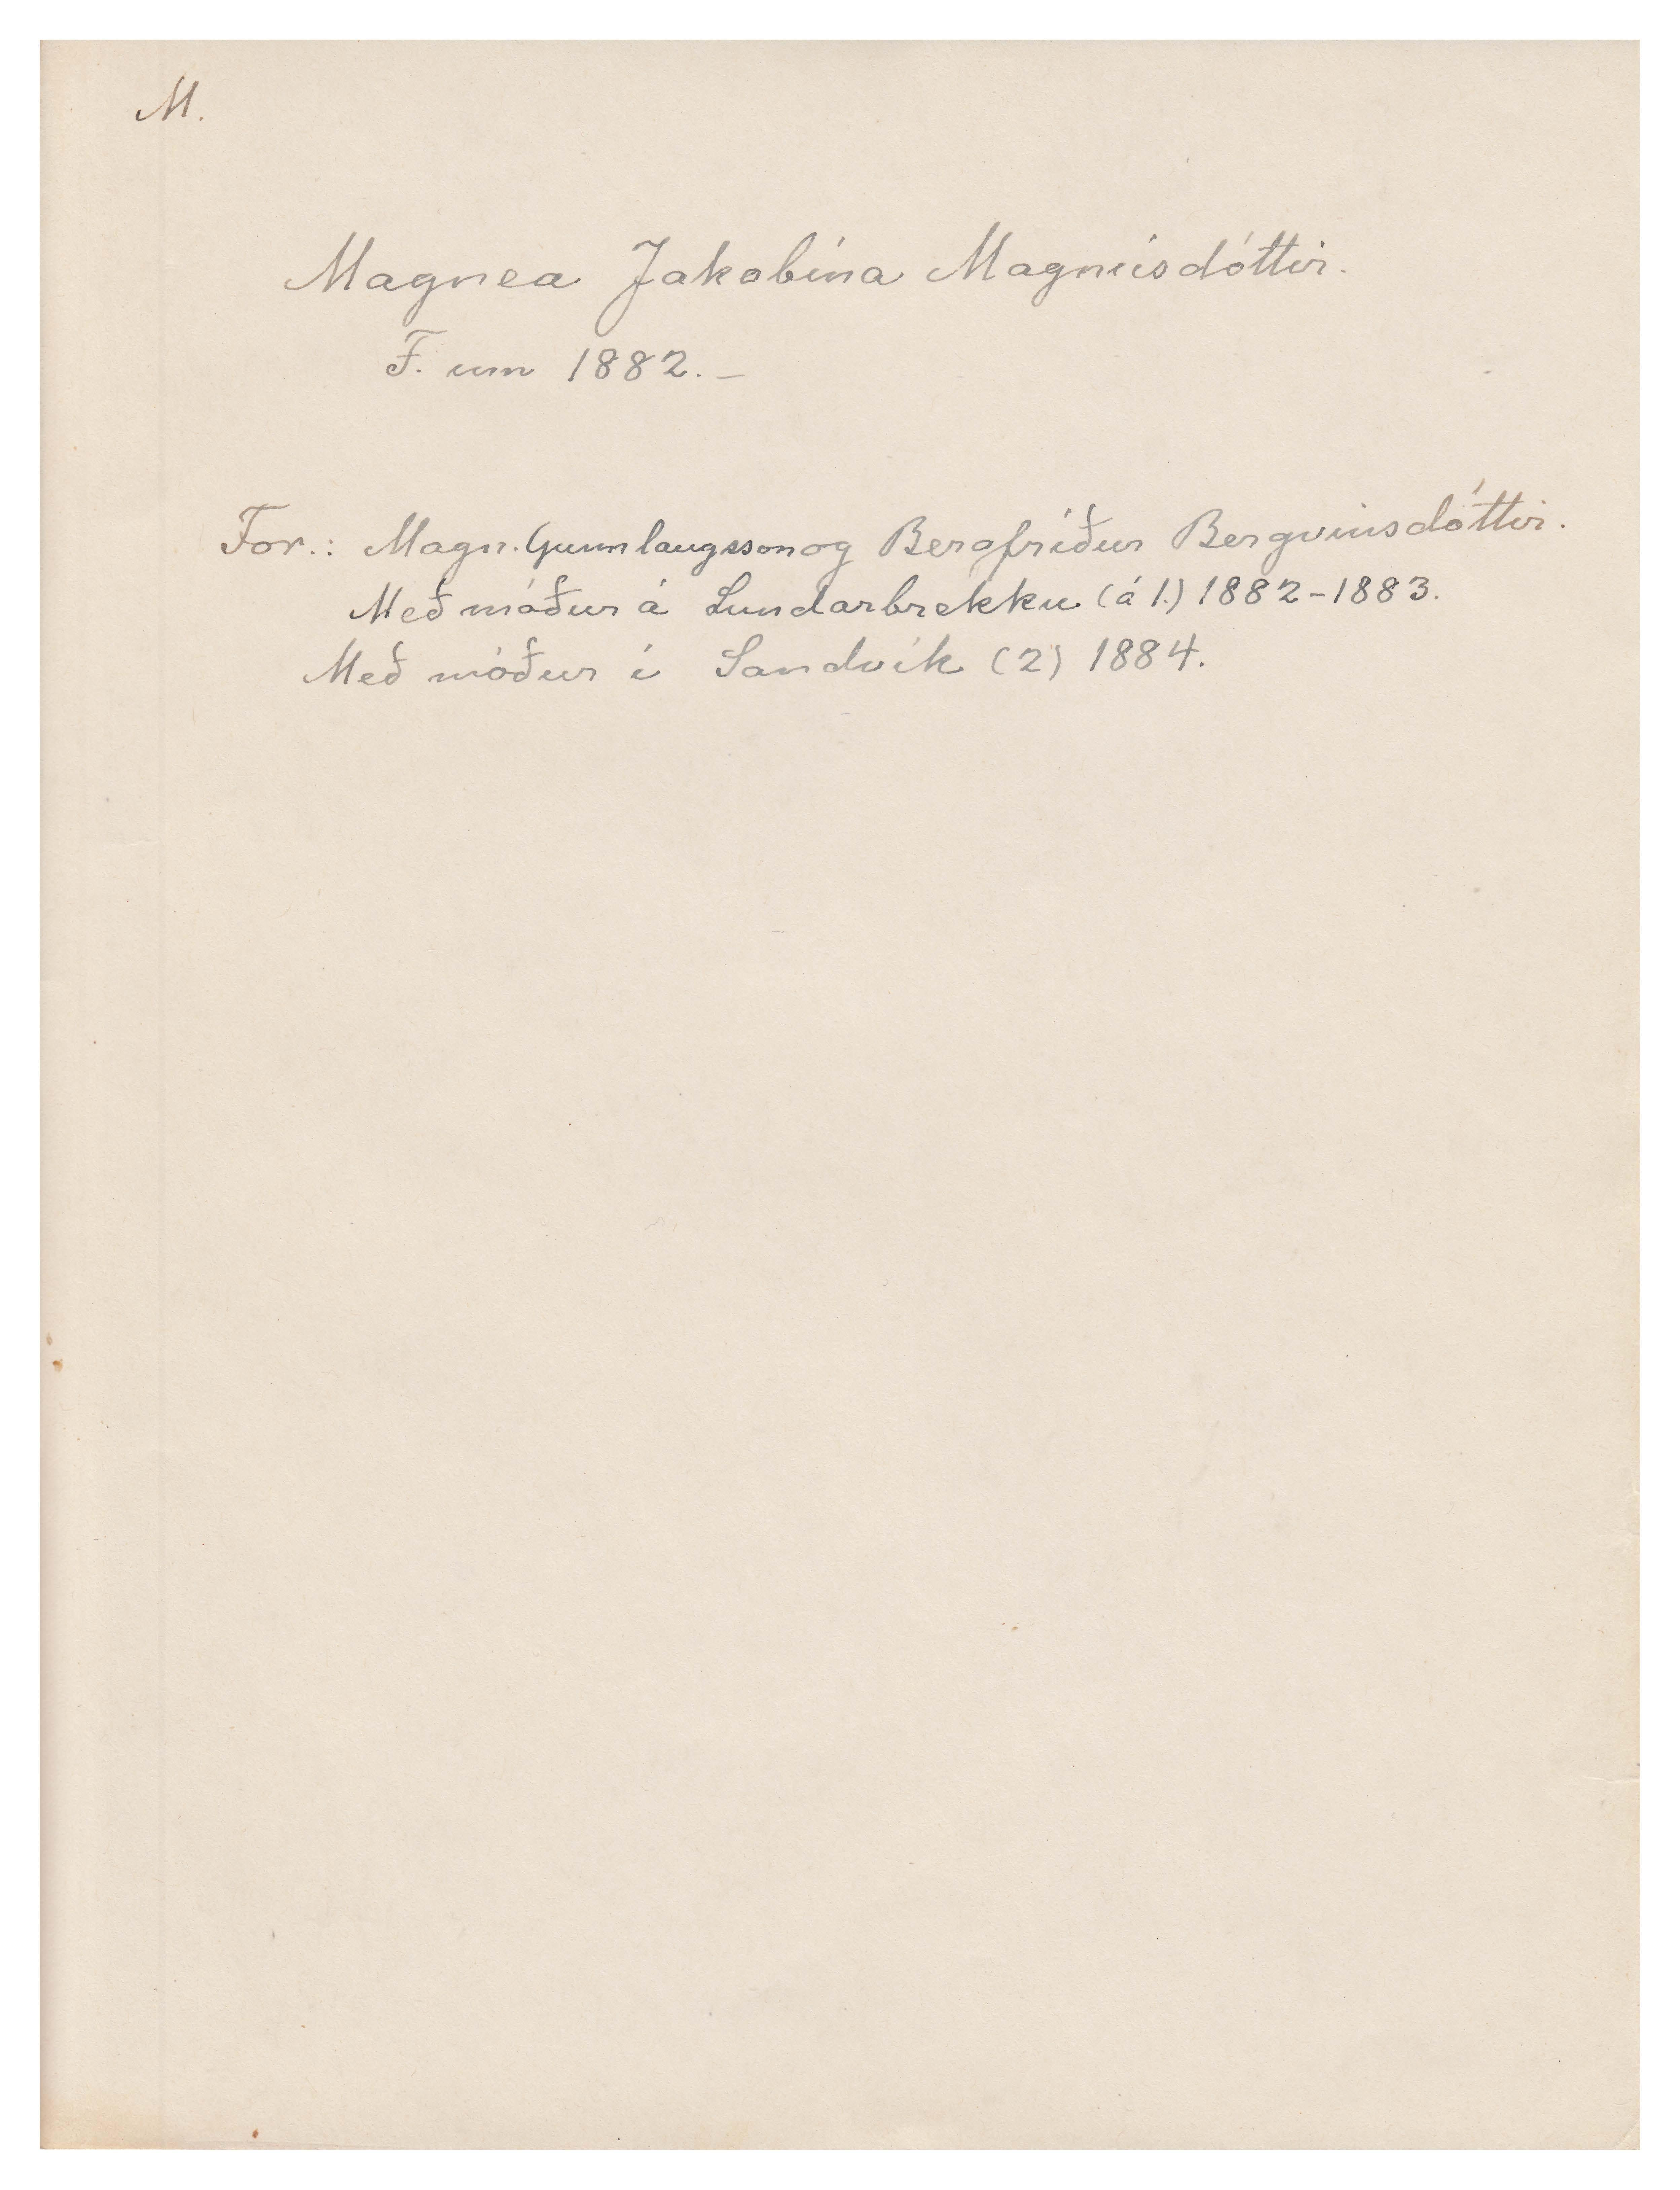 M.
Magnea Jakobína Magnúsdóttir.
F. um 1882. –
For.: Magn. Gunnlaugsson og Bergfríður Bergvinsdóttir.
Með móður á Lundarbrekku (á 1.) 1882-1883.
Með móður í Sandvík (2) 1884.